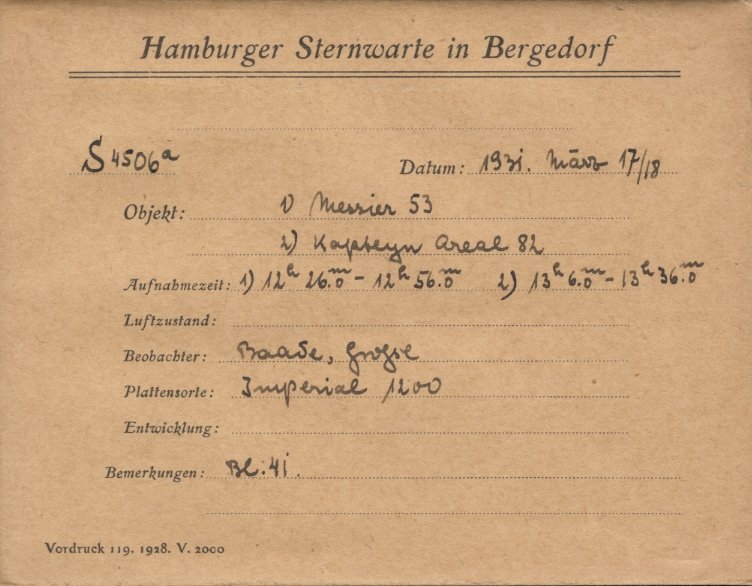 Hamburger Sternwarte in Bergedorf
S4506a Datum: 1931. März 17/18
Objekt: 1) Messier 53
2) Kapteyn Areal 82
Aufnahmezeit: 1) 12h 26m.0 - 12h 56m.0 2) 13h 6m.0 - 13h 36m.0
Luftzustand:
Beobachter: Baade,
Plattensorte: Imperial 1200
Entwicklung:
Bemerkungen: Bl. 41.
Vordruck 119. 1928. V. 2000